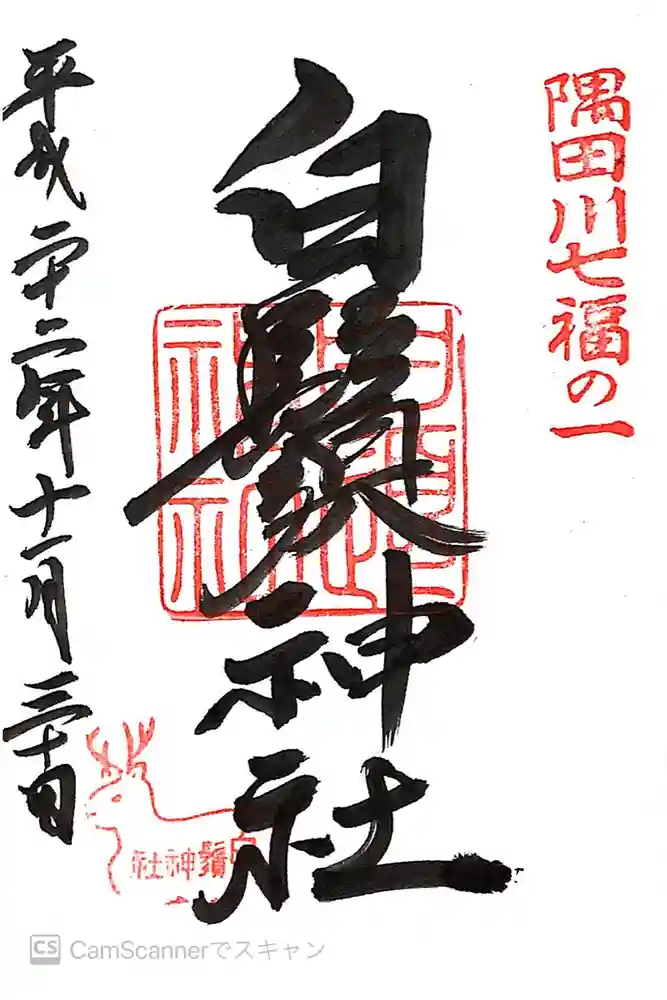 隅田川七福の一
白鬚神社
平成二十二年十一月三十日
白鬚神社
CS CamScannerでスキャン